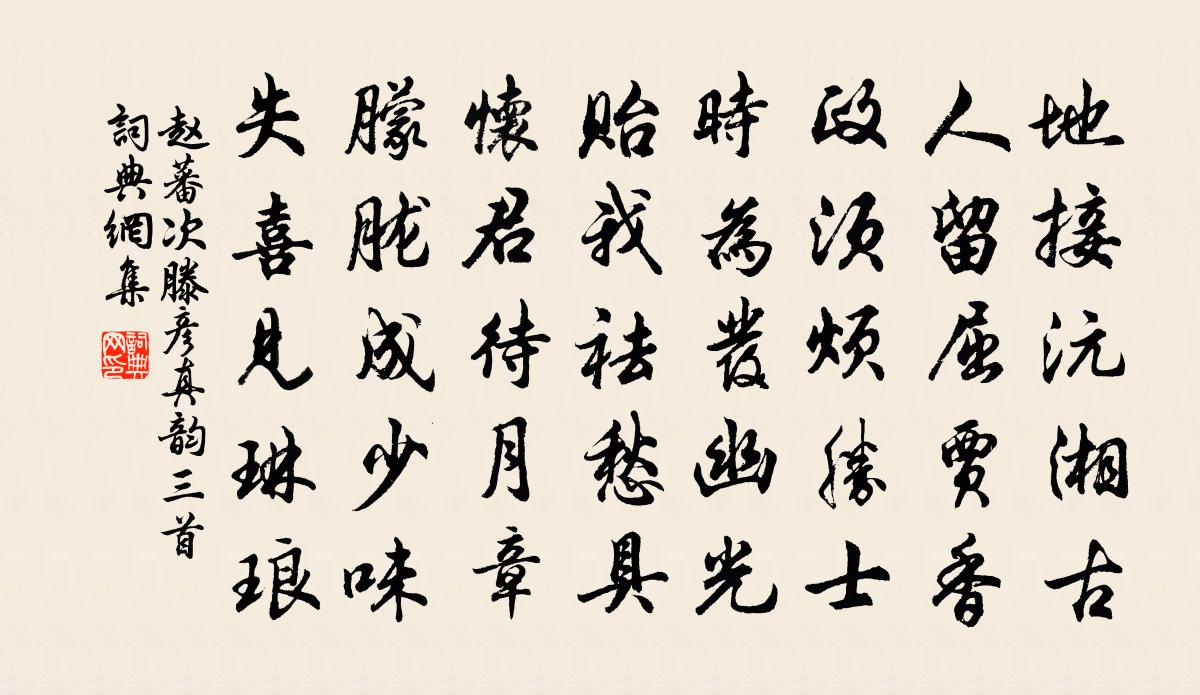 地接沅湘古
人留屈賈香
政須煩勝士
時為發幽光
貽我袪愁具
懷君待月章
朦朧成少味
失喜見琳琅
赵蕃次滕彦真韵三首
詞典網集
詞典网印